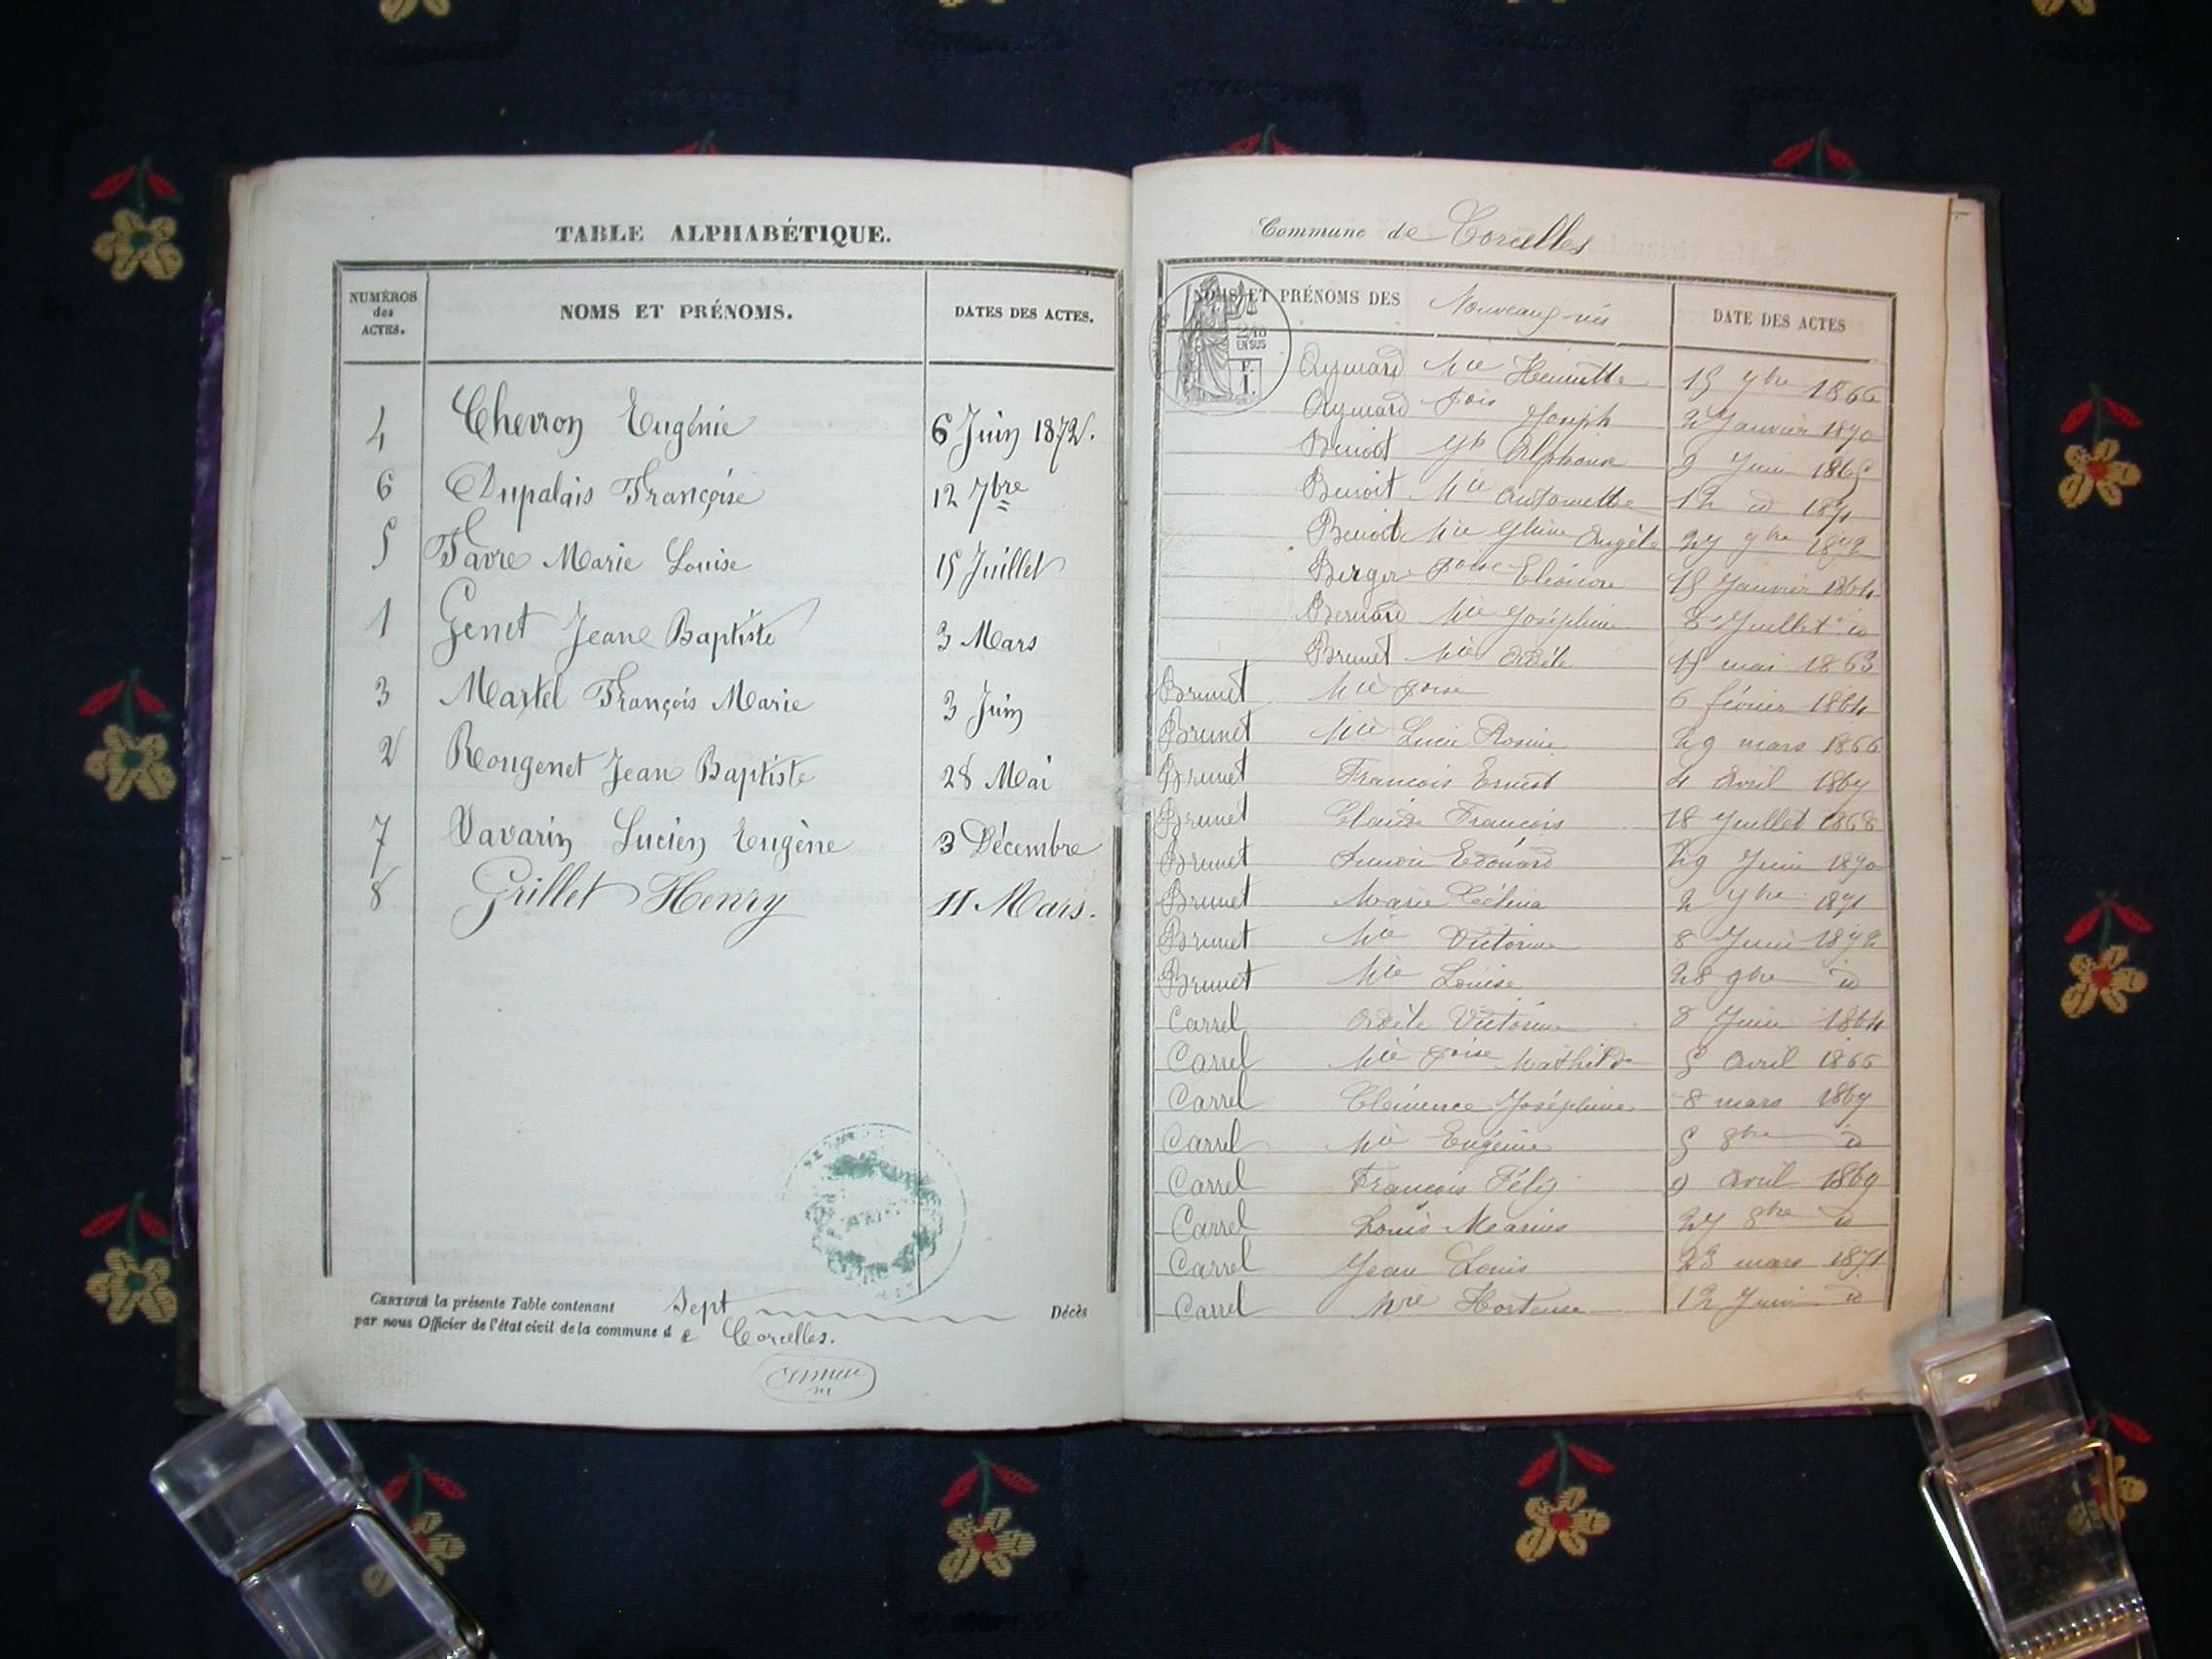 TABLE ALPHABÉTIQUE.
NUMÉROS des ACTES. NOMS ET PRÉNOMS. DATES DES ACTES.
4 Chevron Eugénie 6 Juin 1872.
6 Dupalais Françoise 12 7bre
5 Favre Marie Louise 15 Juillet
1 Genet Jean Baptiste 3 Mars
3 Martel François Marie 3 Juin
2 Rougenet Jean Baptiste 28 Mai
7 Vavarin Lucien Eugène 3 Décembre
8 Grillet Henry 11 Mars.
CERTIFIÉ la présente Table contenant Sept Décès
par nous Officier de l'état civil de la commune de Corcelles.
Commune de Corcelles
NOMS ET PRÉNOMS DES Nouveaux-nés DATE DES ACTES
2/10 EN SUS
F. 1.
Aymard Mie Henriette 15 7bre 1866
Aymard fois Joseph 2 Janvier 1870
Benoit Alphonse 9 Juin 1865
Benoit Mie Antoinette 12 id 1871
Benoit Mie Angèle 27 9bre 1872
Berger foise Eléonore 15 Janvier 1864
Bernard Mie Joséphine 8 Juillet id
Brunet Mie Adèle 15 mai 1863
Brunet Mie foise 6 février 1864
Brunet Mie Lucie Rosine 29 mars 1866
Brunet François Ernest 4 Avril 1867
Brunet Claude François 18 Juillet 1868
Brunet Edouard 29 Juin 1870
Brunet Marie Célina 2 7bre 1871
Brunet Mie Victorine 8 Juin 1872
Brunet Mie Louise 28 9bre id
Carrel Adèle Victorine 8 Juin 1864
Carrel Mie foise Mathilde 5 Avril 1866
Carrel Clémence Joséphine 8 mars 1867
Carrel Mie Eugénie 5 8bre id
Carrel François Félix 9 Avril 1869
Carrel Louis Marius 27 8bre id
Carrel Jean Louis 23 mars 1871
Carrel Mie Hortense 12 Juin id